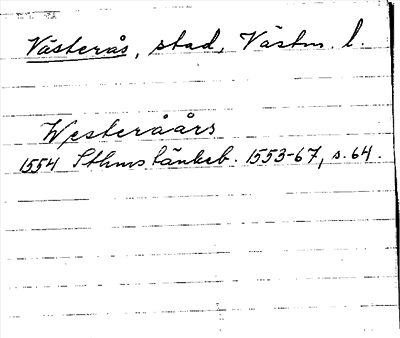 Västerås, stad, Västm. l.
Westeråårs
1554 Sthms tänkeb. 1553-67, s. 64.